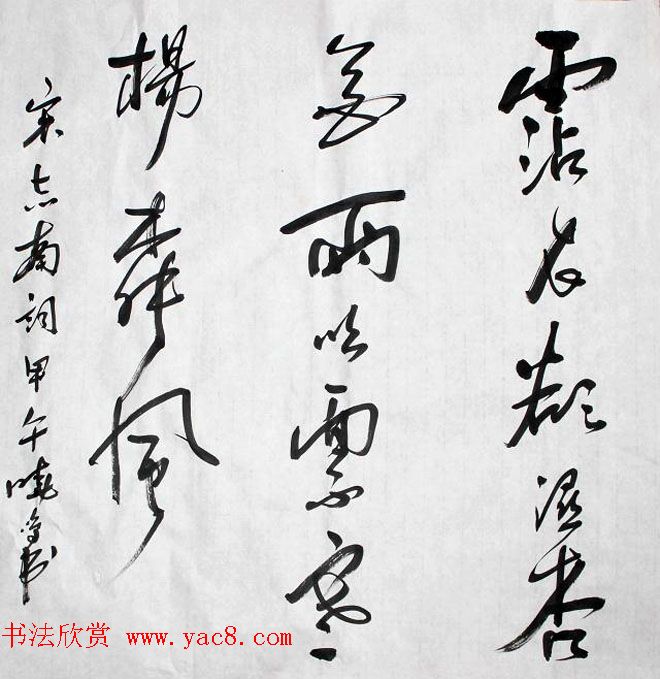 霑衣欲濕杏
花雨吹面不寒
楊柳風
宋志南詞甲午曉書
书法欣赏 www.yac8.com